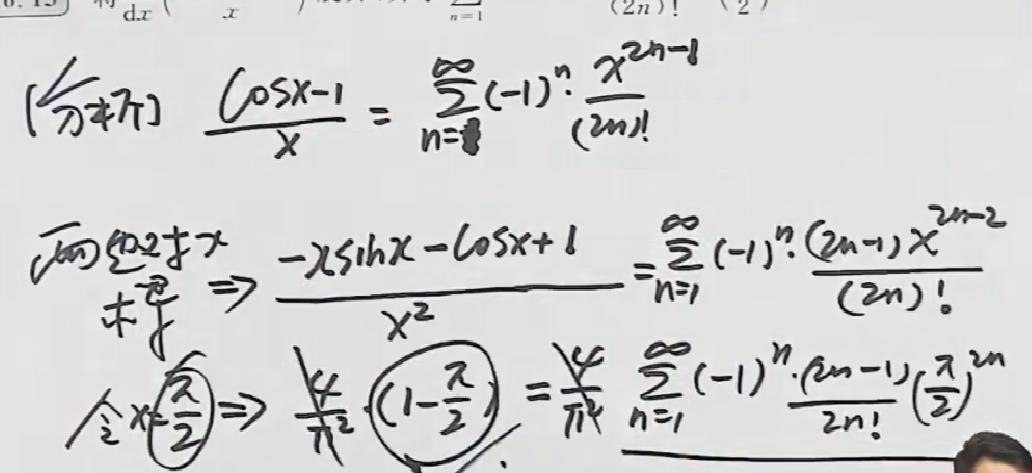 d/dx ( x ) ∑_{n=1} (2n)! (2)
[分析] (cosx-1)/x = ∑_{n=1}^{∞} (-1)^n · x^{2n-1}/(2n)!
两边对x
求导 ⇒ (-xsinx-cosx+1)/x^2 = ∑_{n=1}^{∞} (-1)^n · (2n-1)x^{2n-2}/(2n)!
令x=π/2 ⇒ 4/π^2 · (1-π/2) = 4/π^2 ∑_{n=1}^{∞} (-1)^n · (2n-1)/2n! (π/2)^{2n}